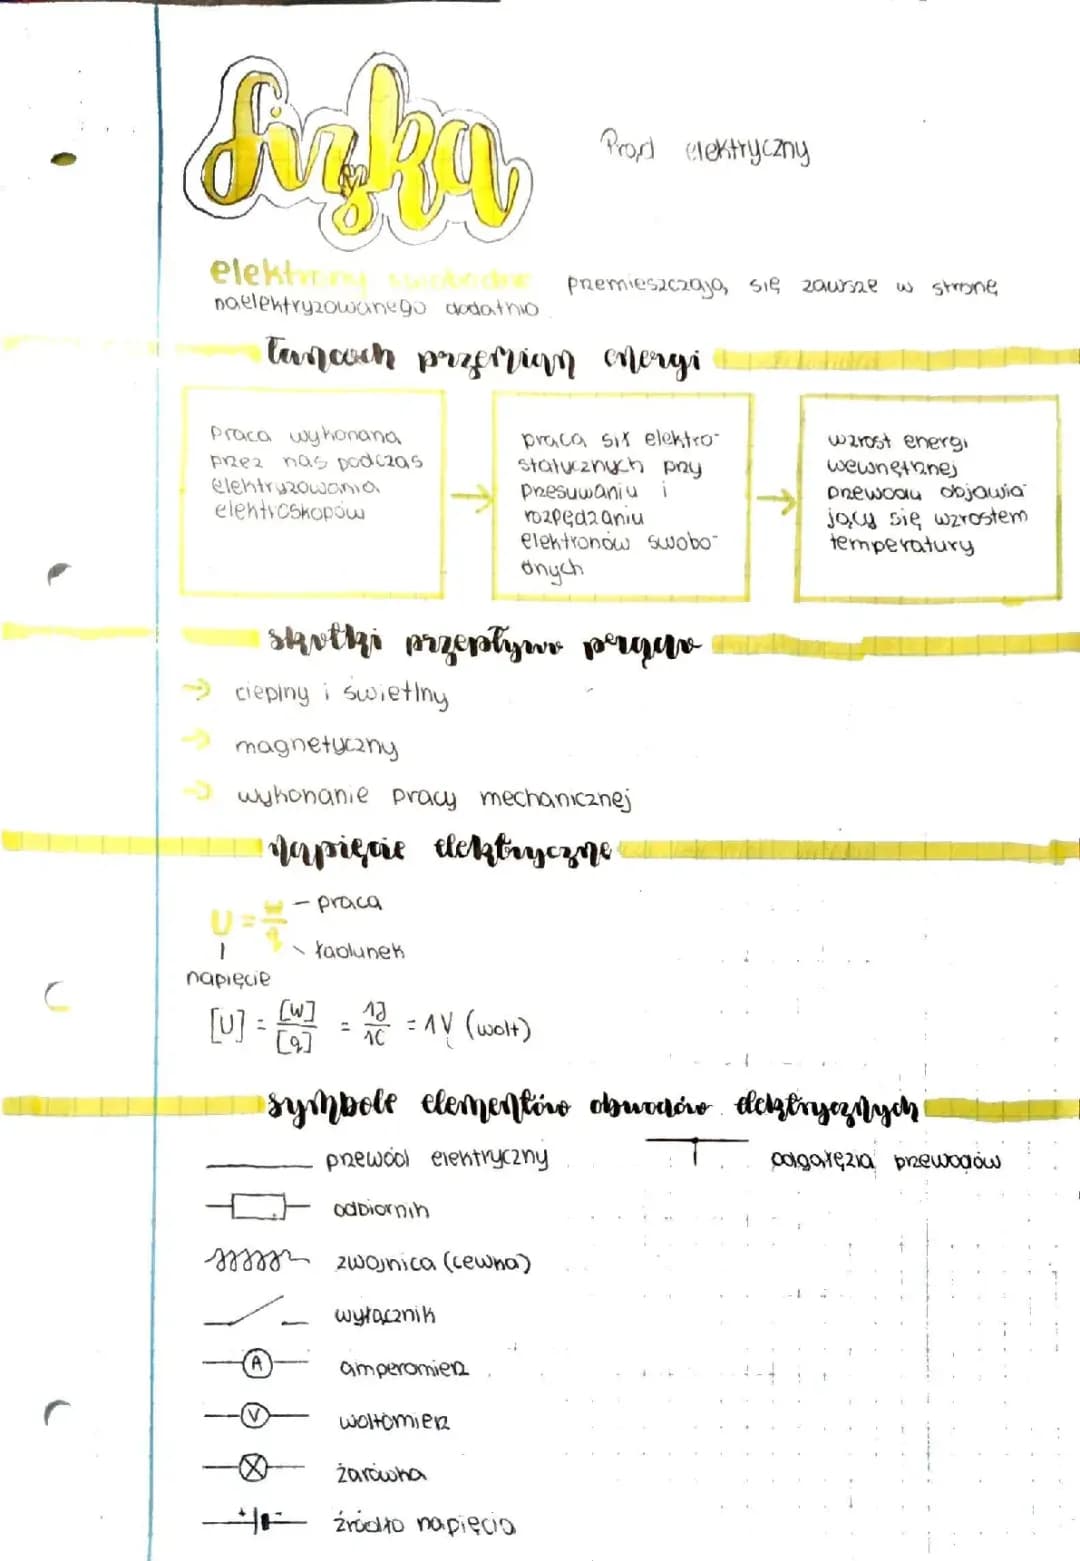 fizyka
Prąd elektryczny
elektrony swobodne przemieszczają się zawsze w stronę
naelektryzowanego dodatnio
Łańcuch przemian energi
praca wykonana
przez nas podczas
elektryzowania
elektroskopów
praca sił elektro-
statycznych przy
przesuwaniu i
rozpędzaniu
elektronów swobo-
dnych
wzrost energi
wewnętrznej
przewodu objawia
jący się wzrostem
temperatury
skutki przepływu prądu
→ cieplny i świetlny
→ magnetyczny
→ wykonanie pracy mechanicznej
napięcie elektryczne
U = W/q
- praca
\ ładunek
napięcie
[U] = [W]/[q] = 1J/1C = 1V (wolt)
symbole elementów obwodów elektrycznych
przewód elektryczny
odgałęzia przewodów
odbiornik
zwojnica (cewka)
wyłącznik
A amperomierz
V woltomierz
żarówka
+ - źródło napięcia